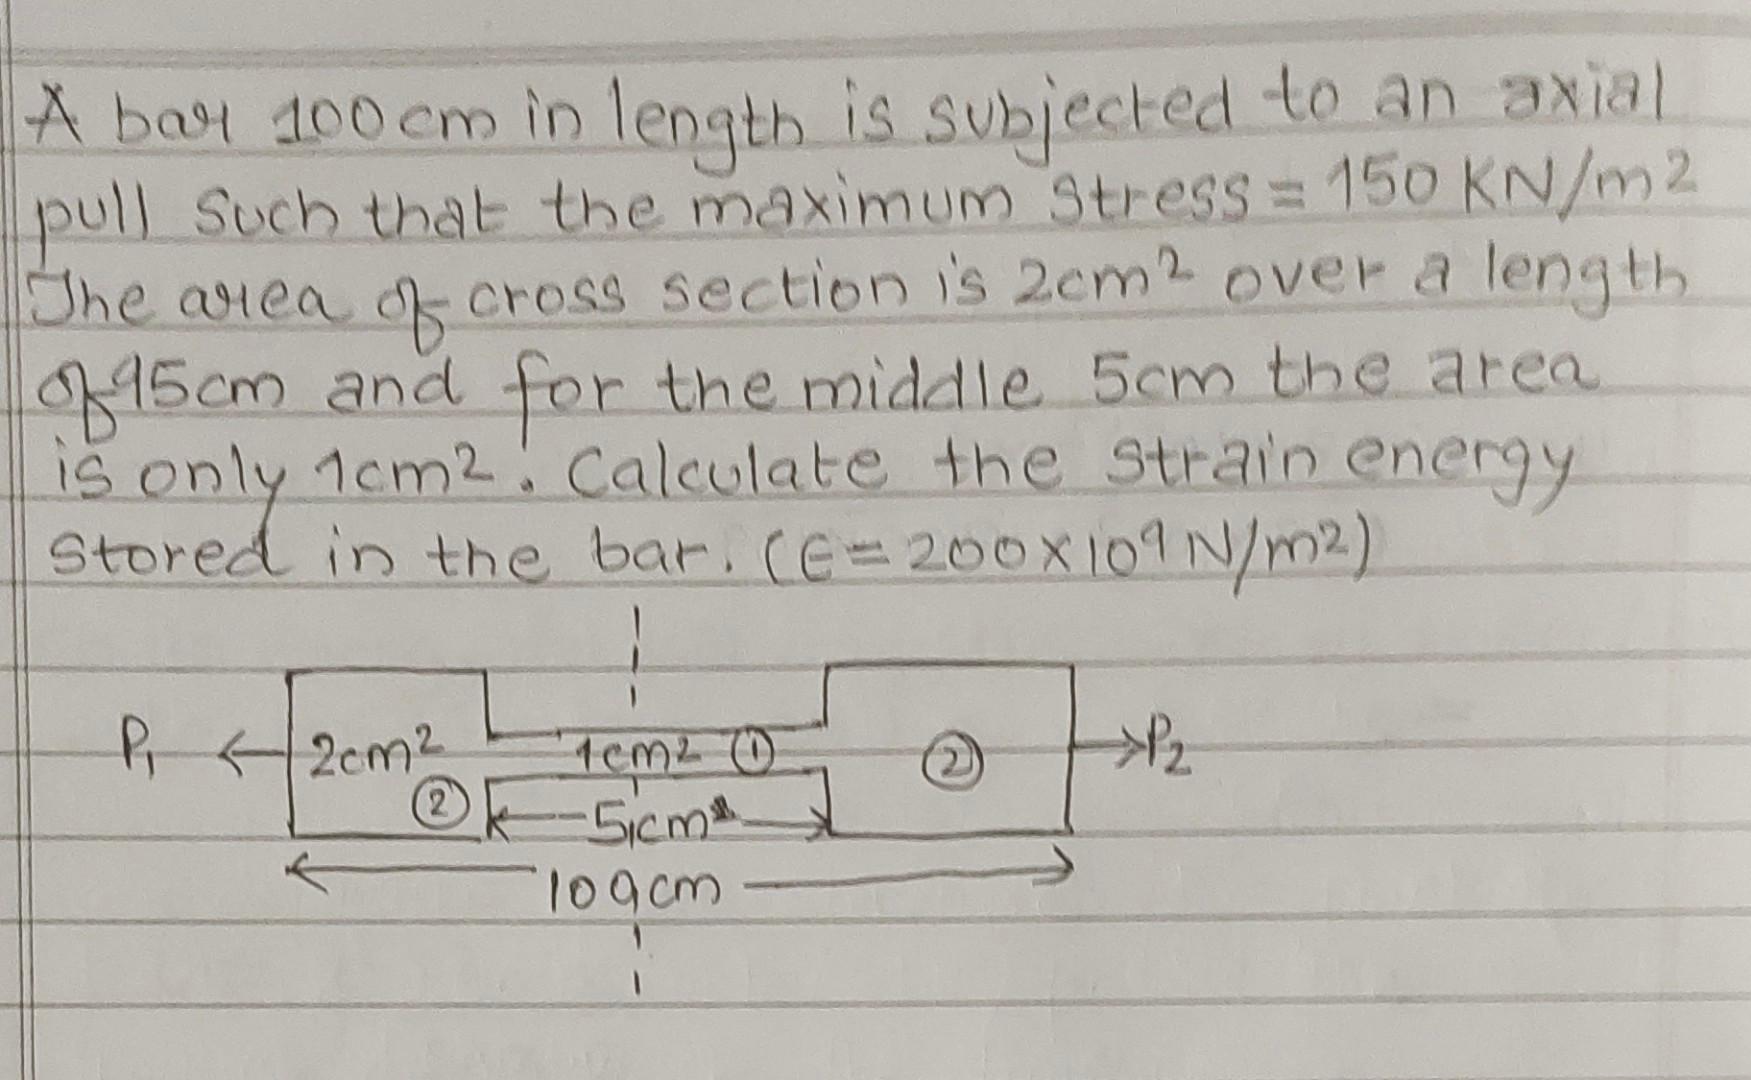 A bar 100cm in length is subjected to an axial
pull such that the maximum stress = 150 KN/m2
The area of cross section is 2cm2 over a length
of 95cm and for the middle 5cm the area
is only 1cm2. Calculate the strain energy
stored in the bar. (E=200x109 N/m2)
P1 2cm2 1cm2 ① ② P2
② 5cm
100cm